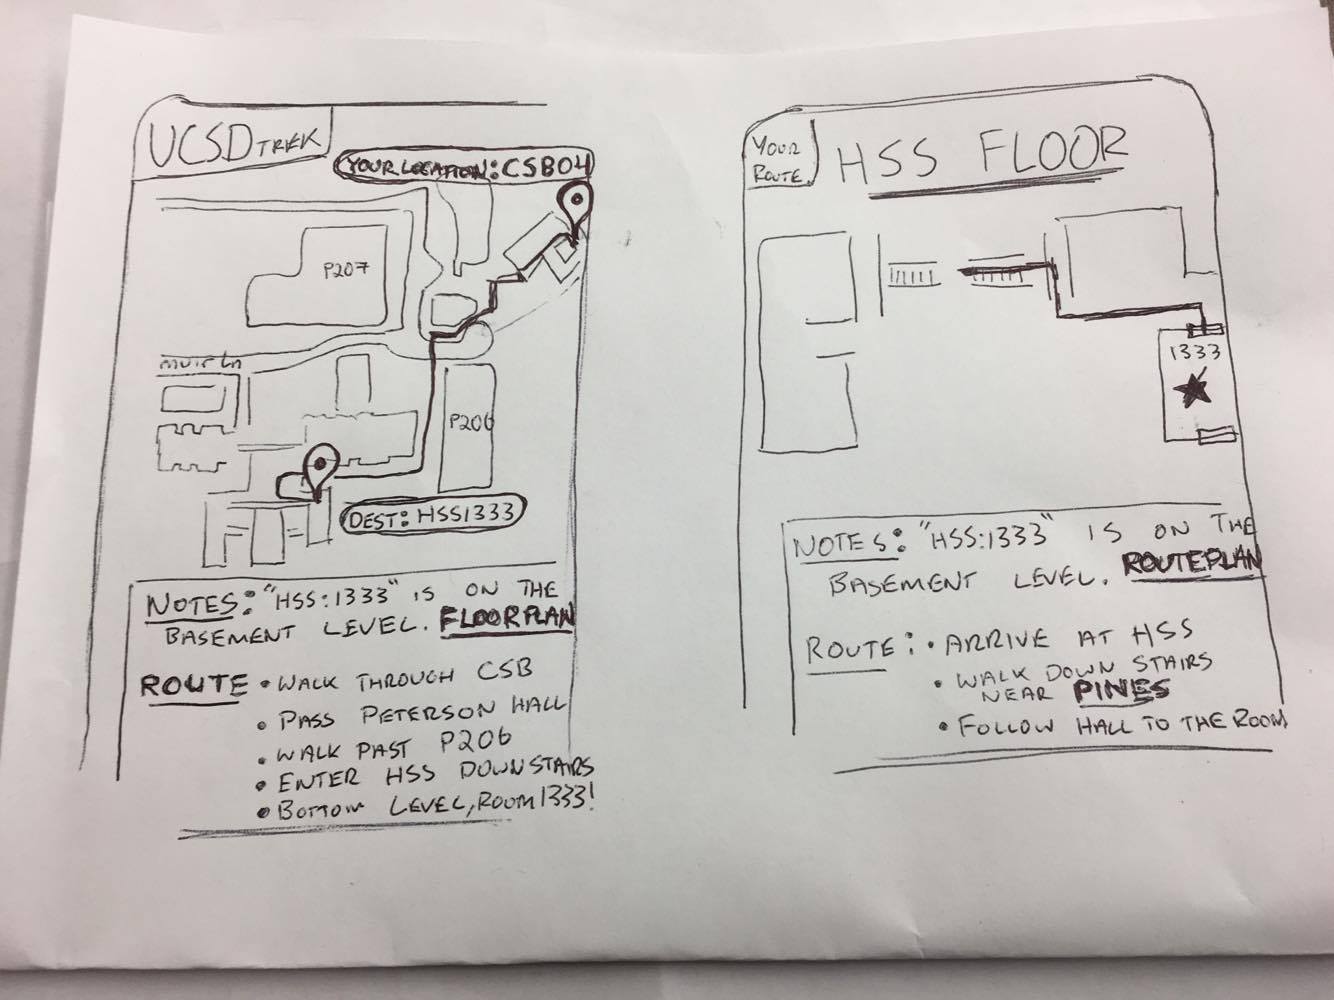 UCSD TREK
YOUR LOCATION: CSB04
P207
muir Ln
P206
DEST: HSS1333
NOTES: "HSS:1333" IS ON THE
BASEMENT LEVEL. FLOORPLAN
ROUTE • WALK THROUGH CSB
• PASS PETERSON HALL
• WALK PAST P206
• ENTER HSS DOWNSTAIRS
• BOTTOM LEVEL, ROOM 1333!
YOUR
ROUTE
HSS FLOOR
1333
NOTES: "HSS:1333" IS ON THE
BASEMENT LEVEL. ROUTEPLAN
ROUTE: • ARRIVE AT HSS
• WALK DOWN STAIRS
NEAR PINES
• FOLLOW HALL TO THE ROOM